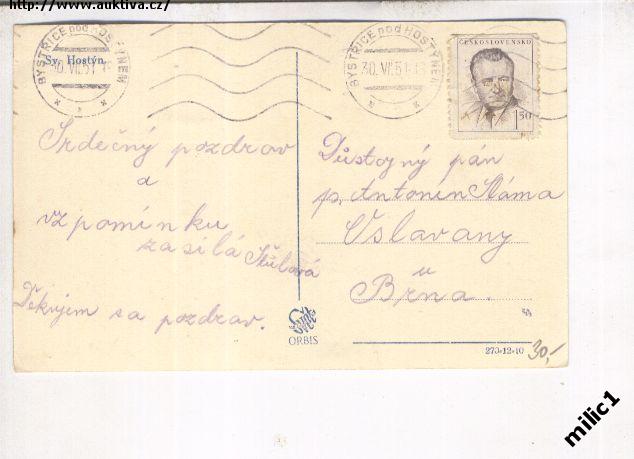 http://www.auktiva.cz/
Sv. Hostýn.
BYSTŘICE pod HOSTÝNEM
30.VII.51
BYSTŘICE pod HOSTÝNEM
30.VII.51-13
ČESKOSLOVENSKO
150
Srdečný pozdrav
a
vzpomínku
zasílá
Děkujem za pozdrav.
Důstojný pán
p. Antonín Sláma
Oslavany
u
Brna.
ORBIS
273-12-10
30,-
milic1